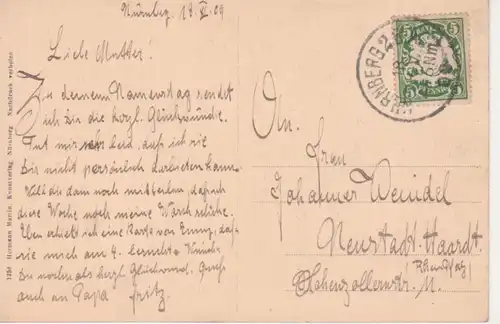 Nürnbg. 18. VI. 09
Liebe Mutter!
Zu deinem Namenstag sendet
ich Dir die herzl. Glückwünsche.
Tut mir sehr leid, daß ich sie
Dir nicht persönlich darbieten kann.
Will dir dann noch mitteilen, daß ich
diese Woche noch meine Wäsch schicke.
Eben erhielt ich eine Karte von Emmy, daß
sie mich am 4.
Du nochmals herzl. Glückwunsch. Gruß
auch an Papa fritz.
1254 Hermann Martin, Kunstverlag Nürnberg Nachdruck verboten
NÜRNBERG 2
5 5
5 5
An.
Frau
Johanna Weindel
Neustadt Haardt
(Rheinpfalz)
Hohenzollernstr.